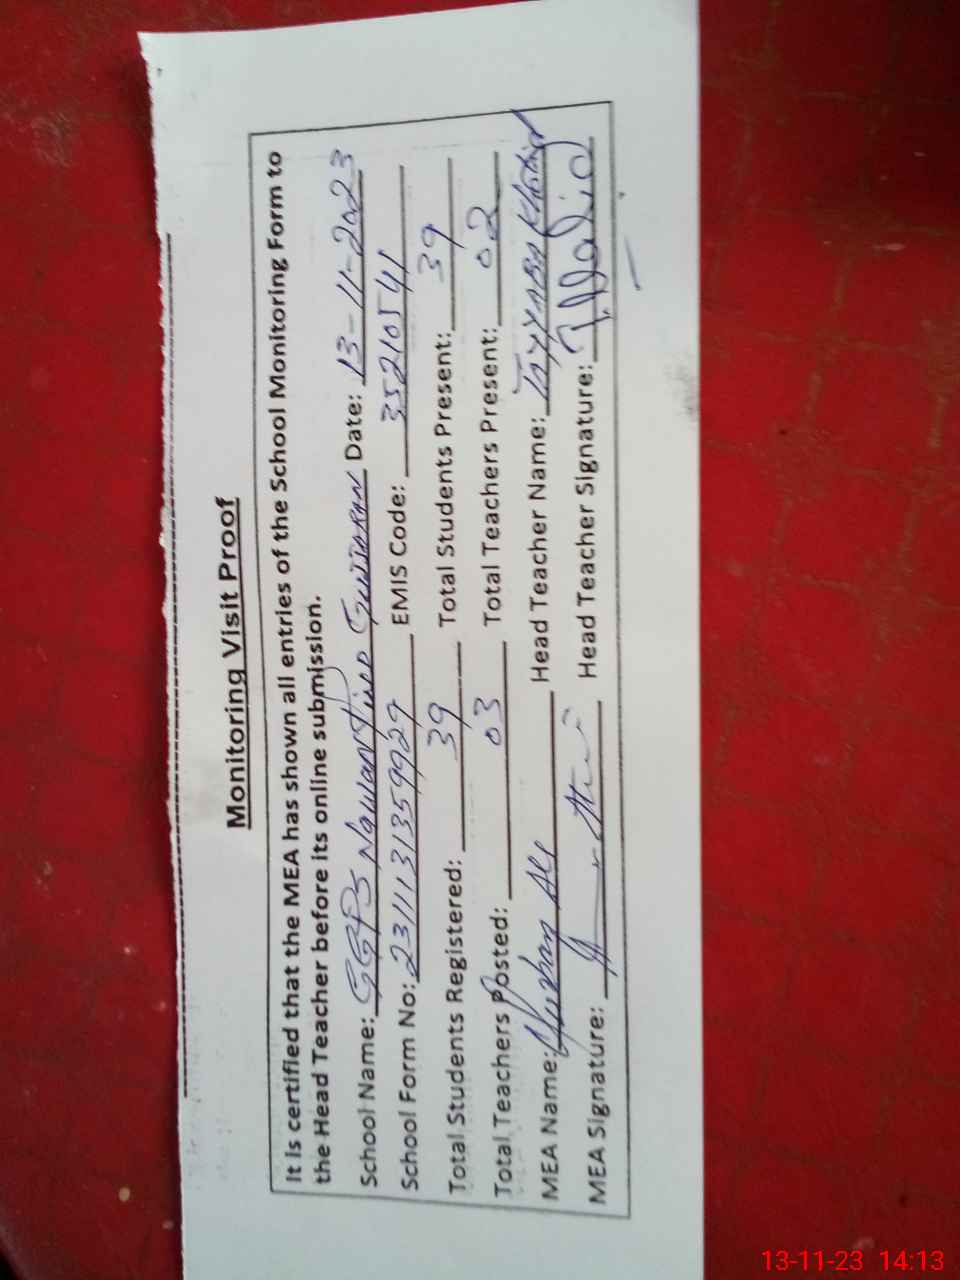 Monitoring Visit Proof
It is certified that the MEA has shown all entries of the School Monitoring Form to
the Head Teacher before its online submission.
School Name: GGPS Nawan Pind Gujjaran Date: 13-11-2023
School Form No: 231113135992 EMIS Code: 35210541
Total Students Registered: 39 Total Students Present: 39
Total Teachers Posted: 03 Total Teachers Present: 02
MEA Name: Ali Head Teacher Name: Tayyaba Khalid
MEA Signature: Head Teacher Signature: Khalid
13-11-23 14:13